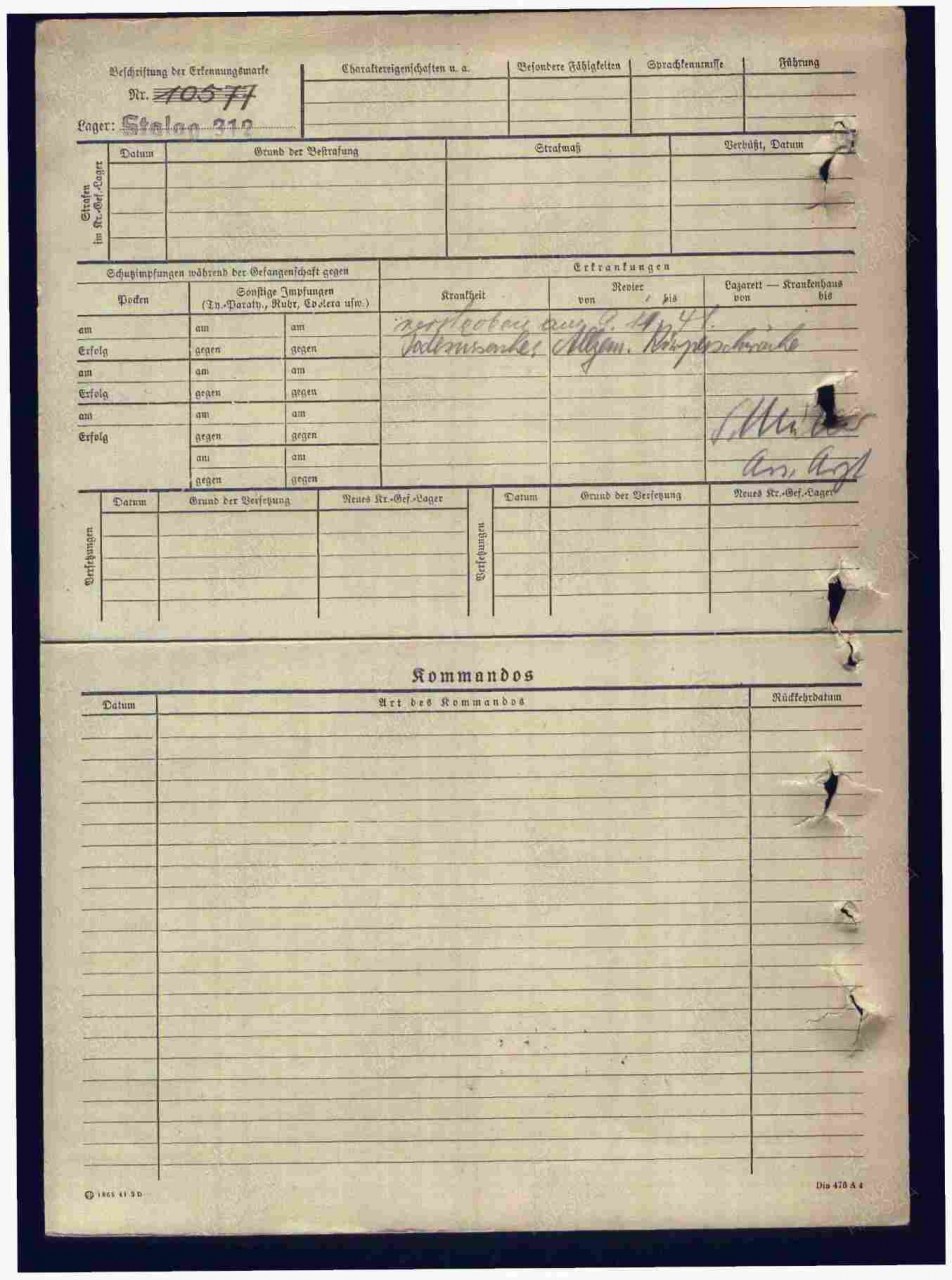 Beschriftung der Erkennungsmarke
Nr. 10577
Lager: Stalag 312
Charaktereigenschaften u. a.
Besondere Fähigkeiten
Sprachkenntnisse
Führung
Strafen im Kr.-Gef.-Lager
Datum
Grund der Bestrafung
Strafmaß
Verbüßt, Datum
Schutzimpfungen während der Gefangenschaft gegen
Erkrankungen
Pocken
Sonstige Impfungen
(Ty.-Paraty., Ruhr, Cholera usw.)
Krankheit
Revier
von bis
Lazarett — Krankenhaus
von bis
am am am
verstorben am 9. 11. 41.
Erfolg gegen gegen
Todesursache: Allgem. Körperschwäche
am am am
Erfolg gegen gegen
am am am
Erfolg gegen gegen
am am
Arzt
gegen gegen
Versetzungen
Datum
Grund der Versetzung
Neues Kr.-Gef.-Lager
Versetzungen
Datum
Grund der Versetzung
Neues Kr.-Gef.-Lager
Kommandos
Datum
Art des Kommandos
Rückkehrdatum
Din 476 A 4